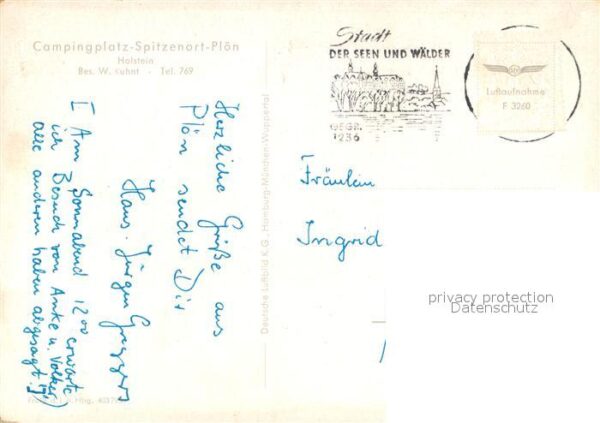 Campingplatz-Spitzenort-Plön
Holstein
Bes. W. Kuhnt · Tel. 769
Herzliche Grüße aus
Plön sendet Dir
Hans-Jürgen
I Am Sonnabend 12⁰⁰ erwarte
ich Besuch von Anke u. Volker)
alle anderen haben abgesagt.
Deutsche Luftbild K.G., Hamburg-München-Wuppertal
Stadt
DER SEEN UND WÄLDER
GEGR.
1236
Luftaufnahme
F 3260
Fräulein
Ingrid
privacy protection
Datenschutz